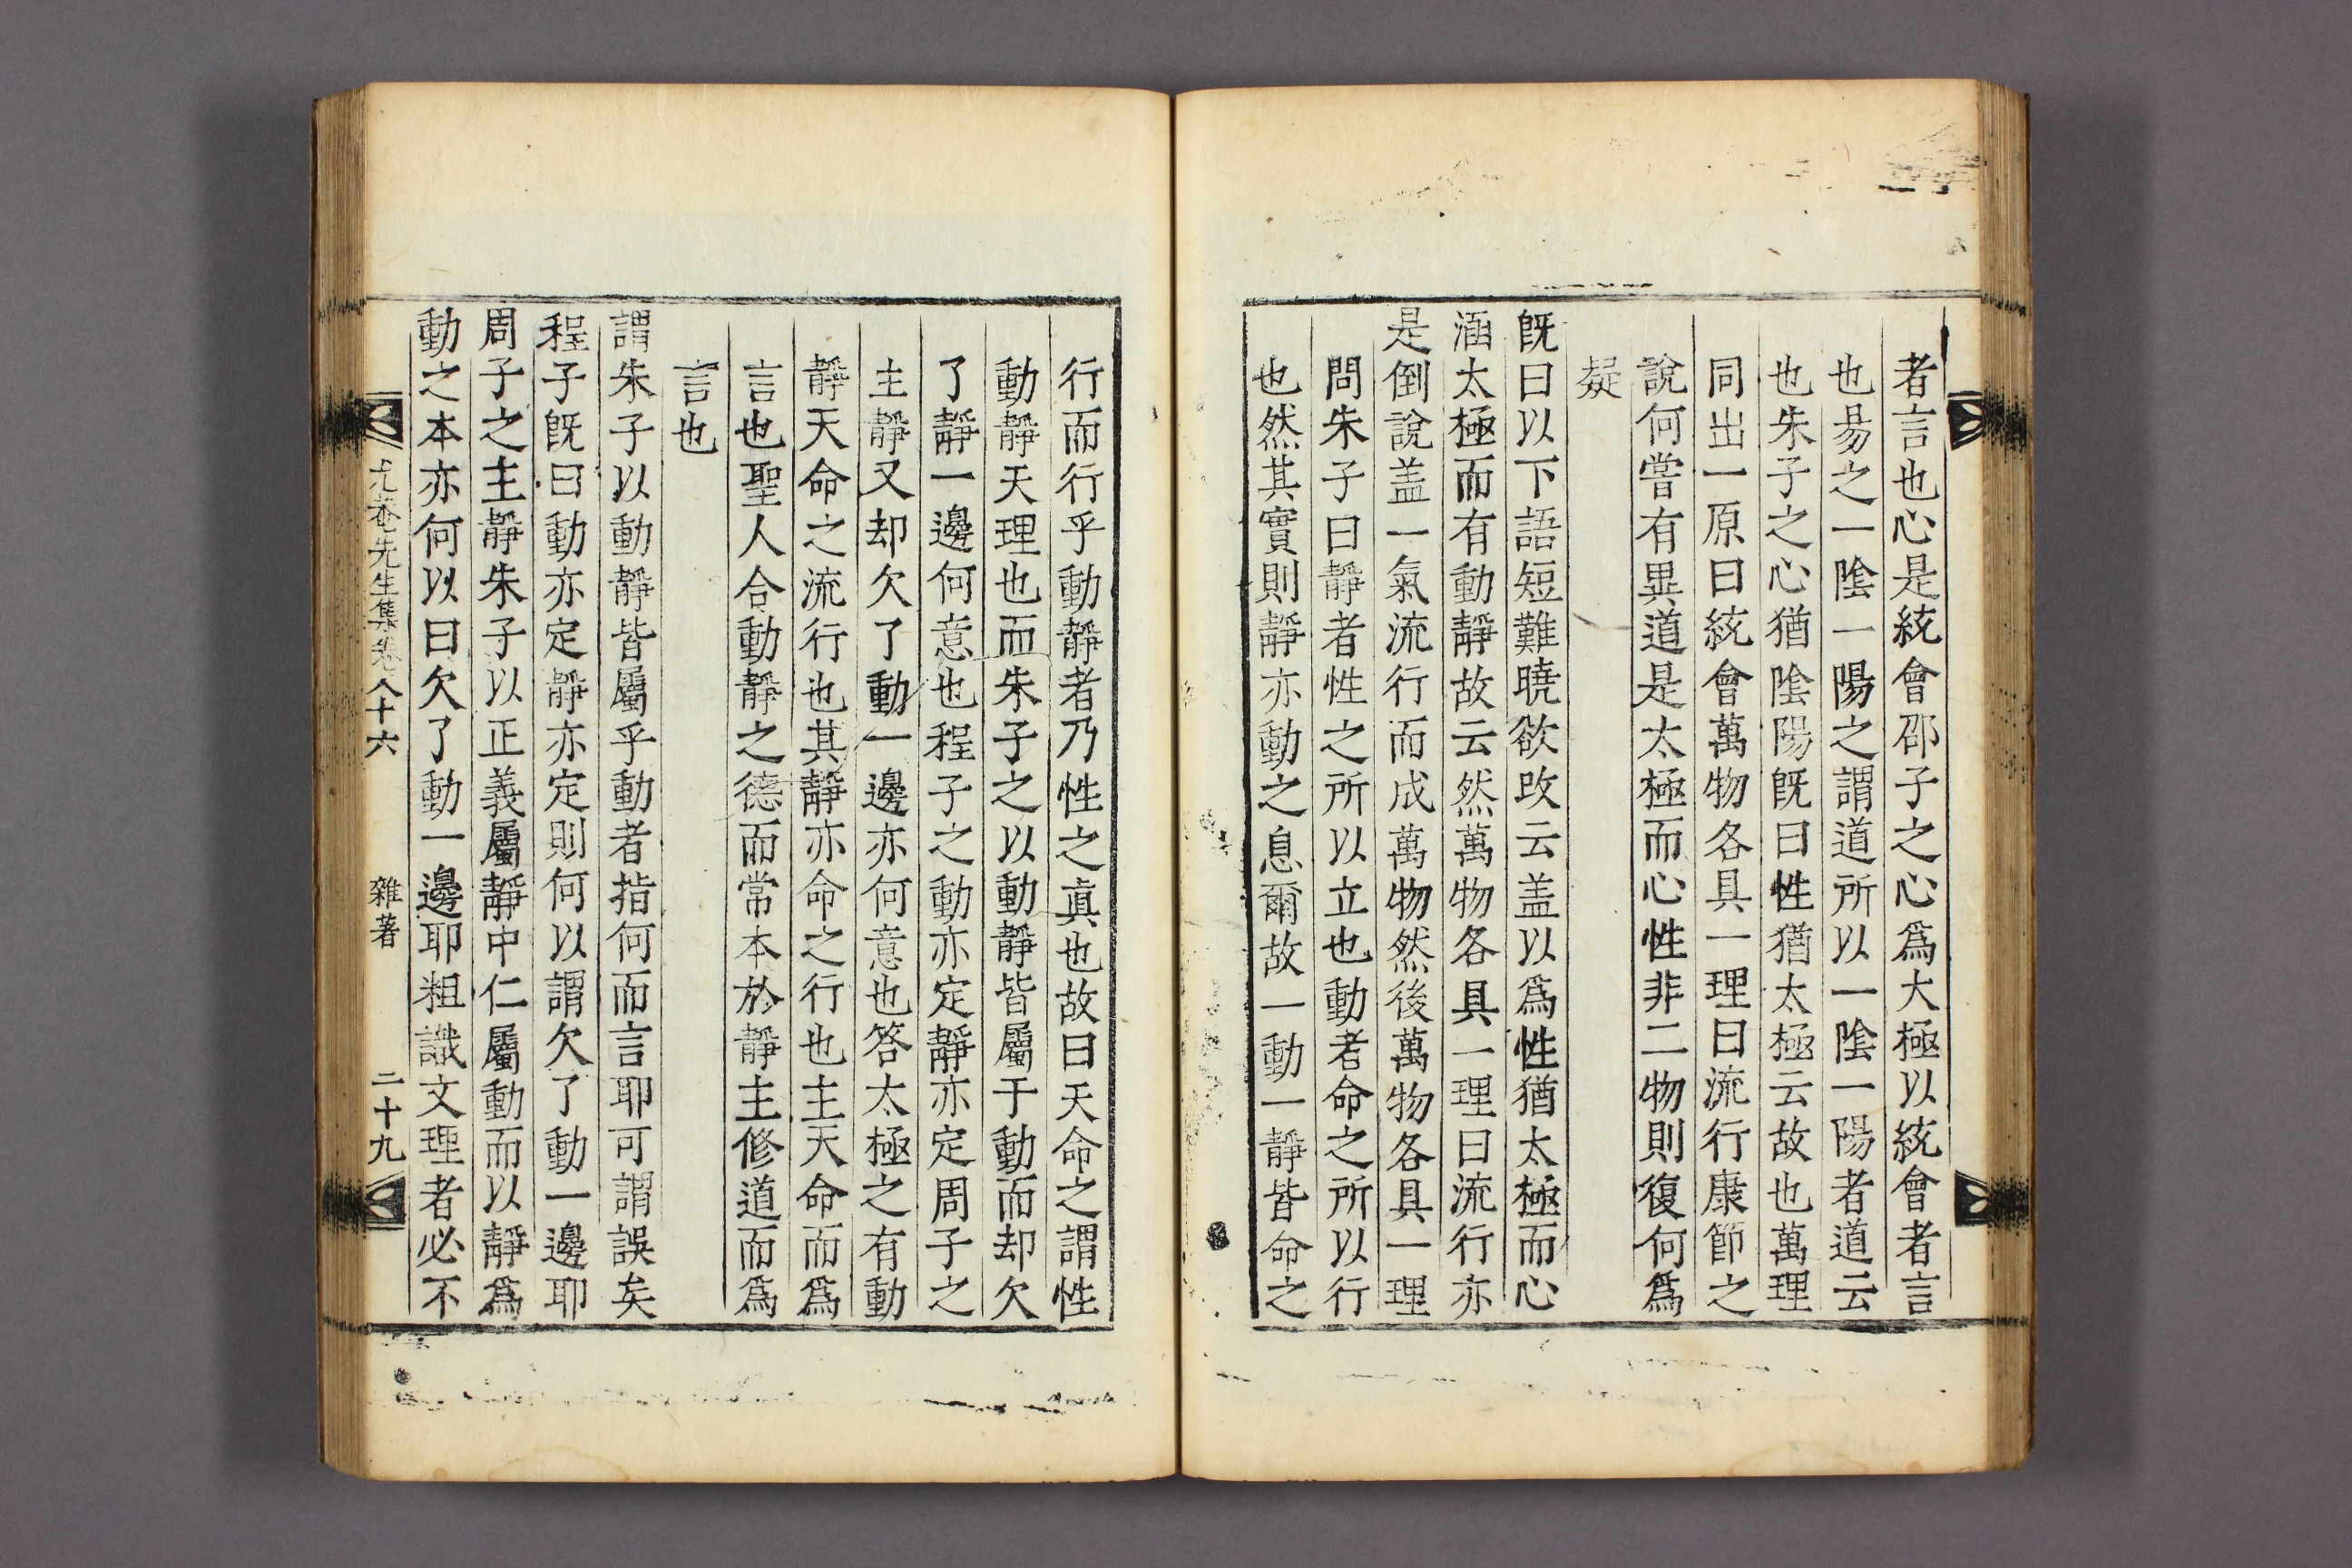 者言也心是統會邵子之心爲大極以統會者言
也易之一陰一陽之謂道所以一陰一陽者道云
也朱子之心猶陰陽旣曰性猶太極云故也萬理
同出一原曰統會萬物各具一理曰流行康節之
說何嘗有異道是太極而心性非二物則復何爲
疑
旣曰以下語短難曉欲改云盖以爲性猶太極而心
涵太極而有動靜故云然萬物各具一理曰流行亦
是倒說盖一氣流行而成萬物然後萬物各具一理
問朱子曰靜者性之所以立也動者命之所以行
也然其實則靜亦動之息爾故一動一靜皆命之
行而行乎動靜者乃性之眞也故曰天命之謂性
動靜天理也而朱子之以動靜皆屬于動而却欠
了靜一邊何意也程子之動亦定靜亦定周子之
主靜又却欠了動一邊亦何意也答太極之有動
靜天命之流行也其靜亦命之行也主天命而爲
言也聖人合動靜之德而常本於靜主修道而爲
言也
謂朱子以動靜皆屬乎動者指何而言耶可謂誤矣
程子旣曰動亦定靜亦定則何以謂欠了動一邊耶
周子之主靜朱子以正義屬靜中仁屬動而以靜爲
動之本亦何以曰欠了動一邊耶粗識文理者必不
尤菴先生集卷八十六 雜著 二十九